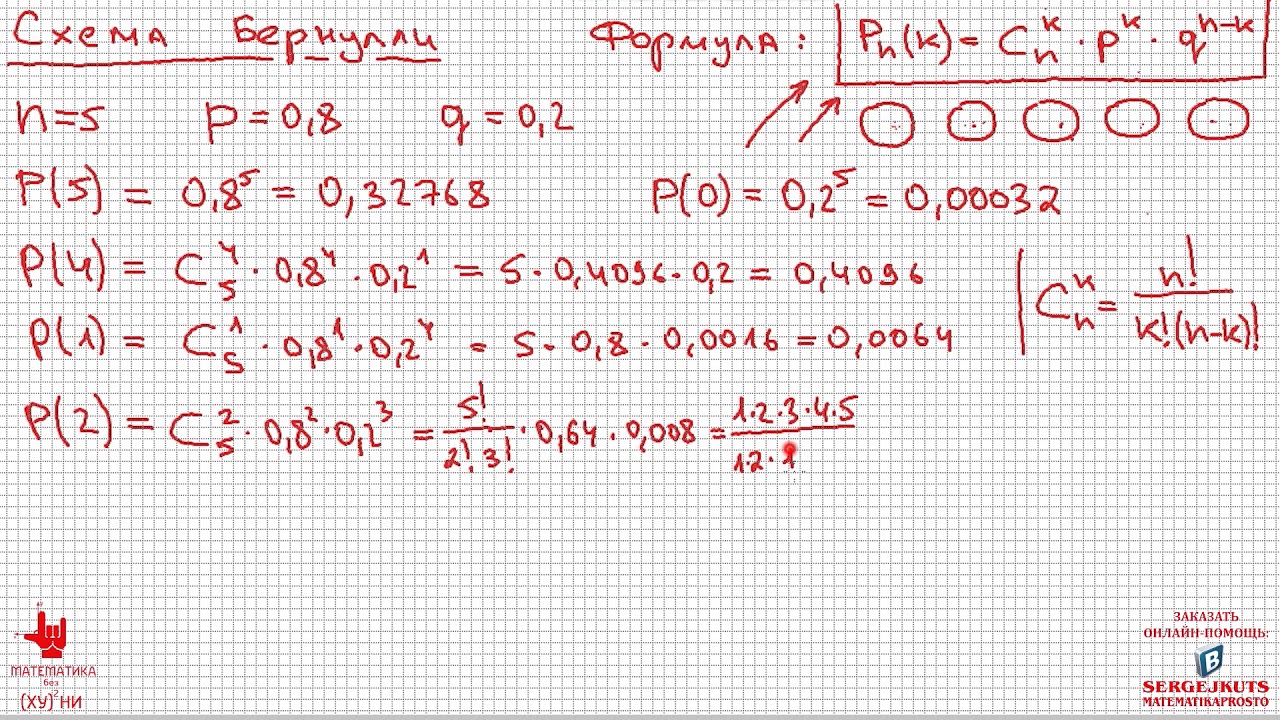 Схема Бернулли Формула: Pₙ(k) = Cₙᵏ · pᵏ · qⁿ⁻ᵏ
n=5 p=0,8 q=0,2
P(5) = 0,8⁵ = 0,32768 P(0) = 0,2⁵ = 0,00032
P(4) = C₅⁴ · 0,8⁴ · 0,2¹ = 5 · 0,4096 · 0,2 = 0,4096
Cₙᵏ = n! / k!(n-k)!
P(1) = C₅¹ · 0,8¹ · 0,2⁴ = 5 · 0,8 · 0,0016 = 0,0064
P(2) = C₅² · 0,8² · 0,2³ = 5! / 2! · 3! · 0,64 · 0,008 = 1·2·3·4·5 / 1·2·1
МАТЕМАТИКА
без
(ХУ)²НИ
ЗАКАЗАТЬ
ОНЛАЙН-ПОМОЩЬ:
B
SERGEJKUTS
MATEMATIKAPROSTO